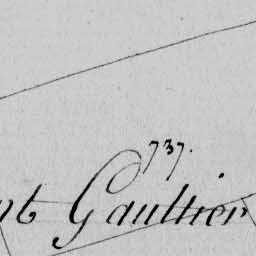 737.
nt Gaultier